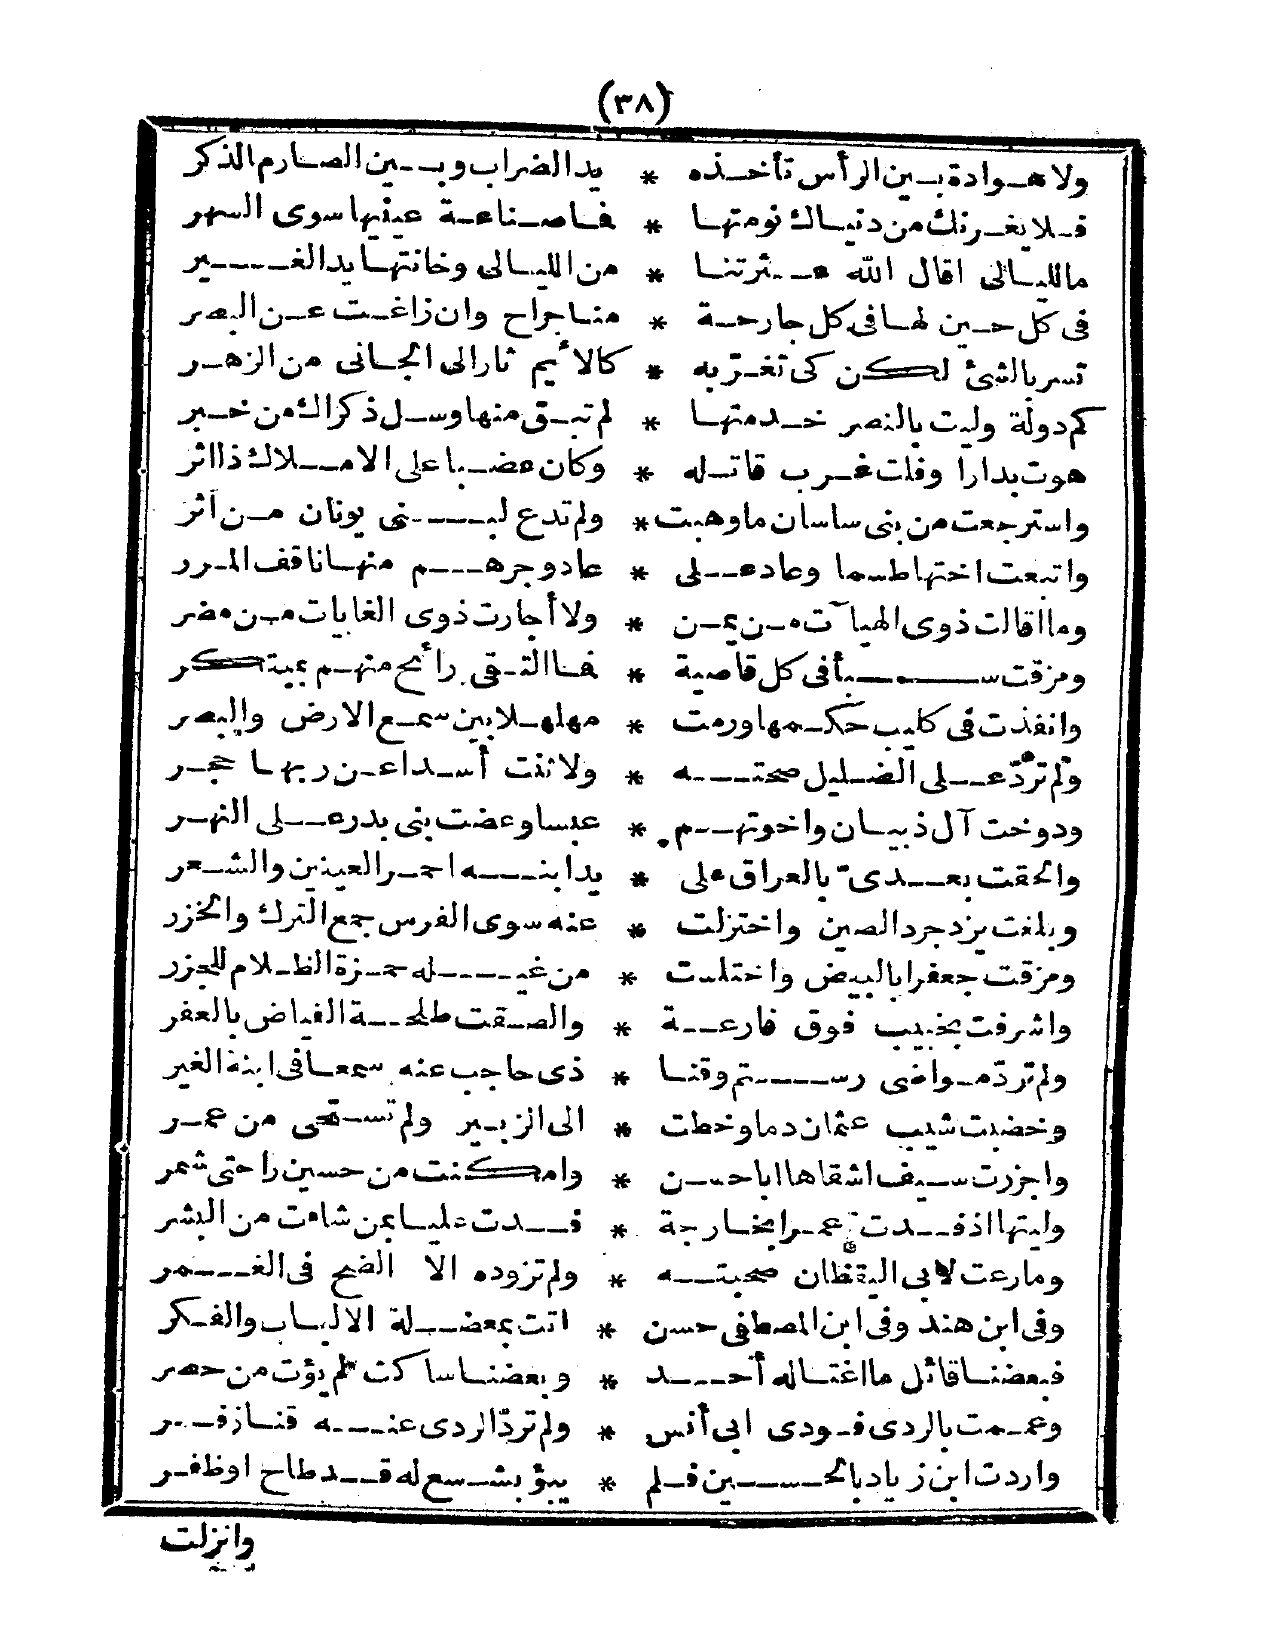 (٣٨)
ولا هوادة بين الرأس تأخذه * يد الضراب وبين الصارم الذكر
فلا يغرنك من دنياك نومتها * فما صناعة عينيها سوى السهر
ما لليالى اقال الله عثرتنا * من الليالى وخانتها يد الغير
فى كل حين لها فى كل جارحة * منا جراح وان زاغت عن البصر
تسر بالشئ لكن كى تغر به * كالأيم ثار الى الجانى من الزهر
كم دولة وليت بالنصر خدمتها * لم تبق منها وسل ذكراك من خبر
هوت بدارا وفلت غرب قاتله * وكان عضبا على الاملاك ذا اثر
واسترجعت من بنى ساسان ما وهبت * ولم تدع لبنى يونان من أثر
واتبعت اختها طسما وعاد على * عاد وجرهم منها ناقف المرر
وما اقالت ذوى الهيآت من يمن * ولا أجارت ذوى الغايات من مضر
ومزقت سبأ فى كل قاصية * فما التقى رائح منهم بمبتكر
وانفذت فى كليب حكمها ورمت * مهلهلا بين سمع الارض والبصر
ولم تردّ على الضليل صحته * ولا ثنت أسدا عن ربها حجر
ودوخت آل ذبيان واخوتهم * عبسا وعضت بنى بدر على النهر
والحقت بعدىّ بالعراق على * يد ابنه احمر العينين والشعر
وبلغت يزدجرد الصين واختزلت * عنه سوى الفرس جمع الترك والخزر
ومزقت جعفرا بالبيض واختلست * من غيله حمزة الظلام للجزر
واشرفت بخبيب فوق فارعة * والصقت طلحة الفياض بالعفر
ولم تردّ مواضى رستم وقنا * ذى حاجب عنه سعما فى ابنة الغير
وخضبت شيب عثمان دما وخطت * الى الزبير ولم تستحى من عمر
واجزرت سيف اشقاها ابا حسن * وامكنت من حسين راحتى شمر
وليتها اذ فدت عمرا بخارجة * فدت عليا بمن شاءت من البشر
وما رعت لابى اليقظان صحبته * ولم تزوده الا الضيح فى الغمر
وفى ابن هند وفى ابن المصطفى حسن * اتت بمعضلة الالباب والفكر
فبعضنا قائل ما اغتاله أحد * وبعضنا ساكت لم يؤت من حصر
وعممت بالردى فودى ابى أنس * ولم تردّ الردى عنه قنا زفر
واردت ابن زياد بالحسين فلم * يبؤ بشسع له قد طاح او ظفر
وانزلت